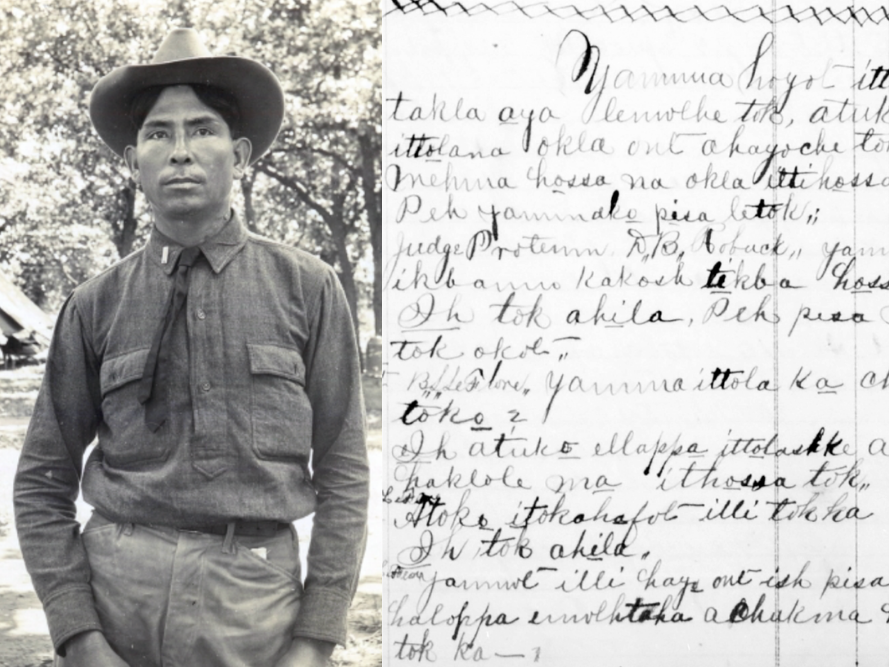 Yammua hoyot itt
takla aya lenwlhe tok, atuk
ittolana okla ont ahayoche tok
Mehma hossa na okla ittihossa
Peh yammako pisa letok,,
Judge Protemn D,B, Roback,, yam
ikbanno kakosh tekba hoss
Ih tok ahila, Peh pisa
tok okot,,
B,, LeFlore, yamma ittola ka ch
toko ?
Ih atuko ellappa ittolashke a
haklole ma ithossa tok,,
Atoko itokahofot illi tokka
Ih tok ahila.
yammot illi haye ont ish pisa
haloppa enwlhtaha achukma
tok ka — ?